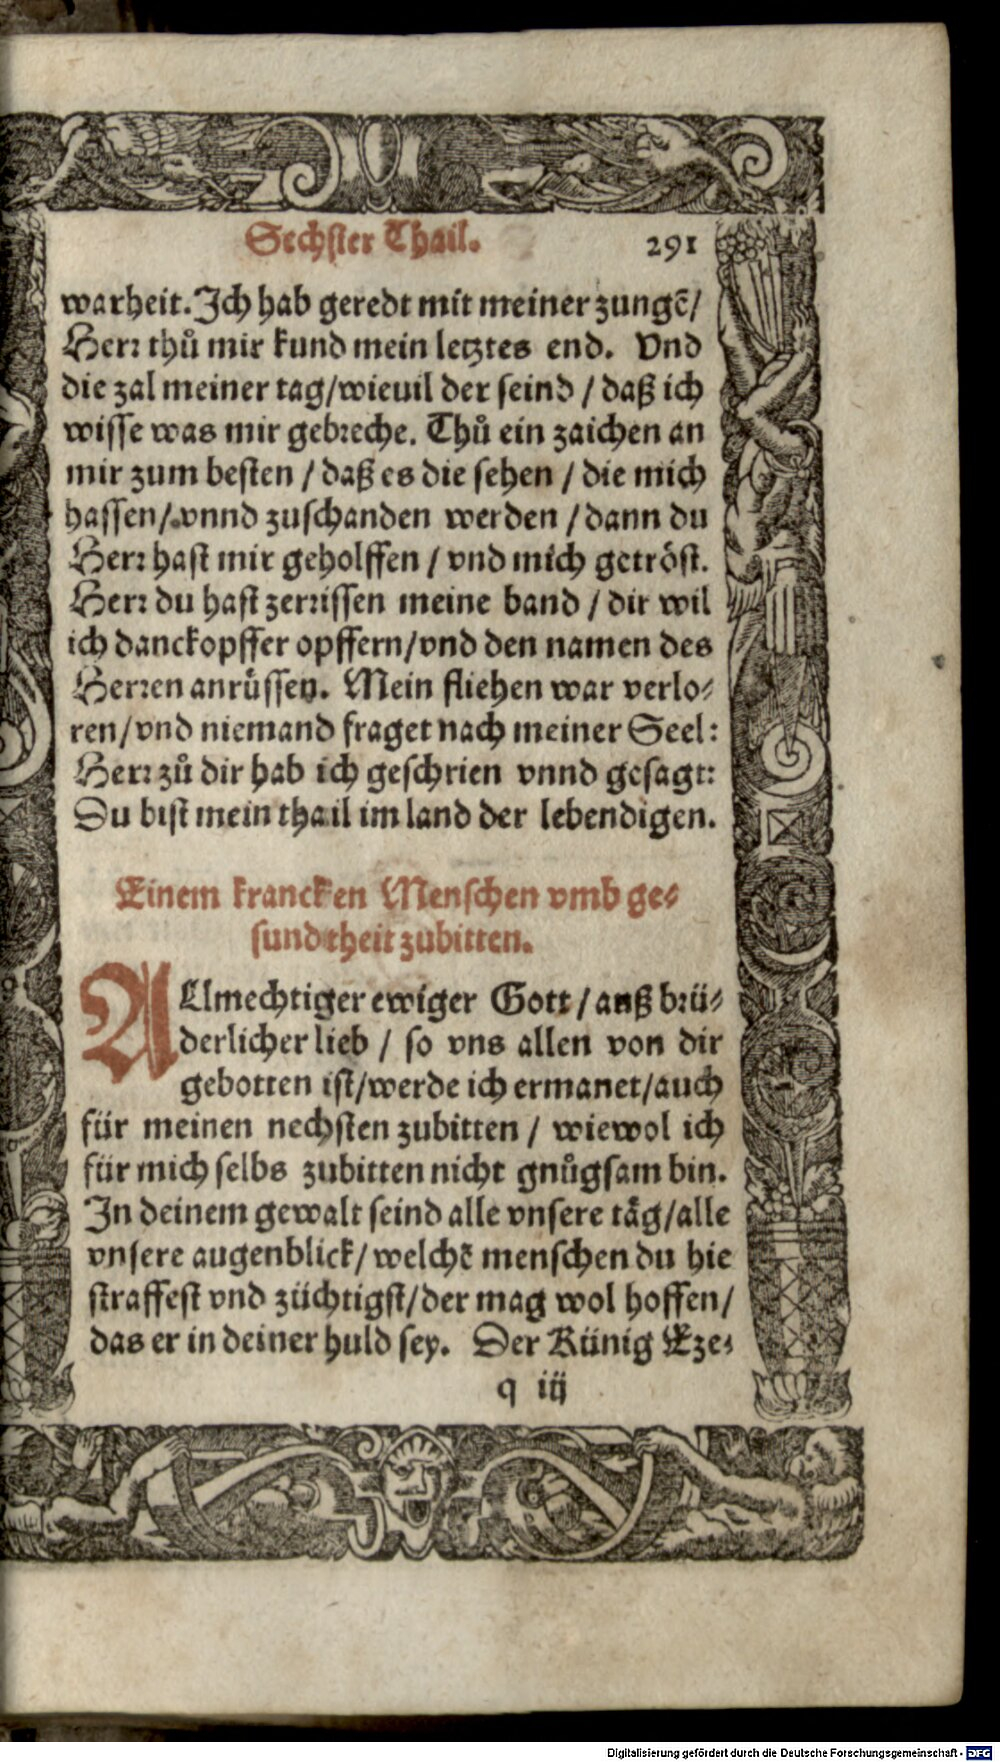 Sechster Thail. 291
warheit. Jch hab geredt mit meiner zungē/
Herr thů mir kund mein letztes end. Vnd
die zal meiner tag/wieuil der seind / daß ich
wisse was mir gebreche. Thů ein zaichen an
mir zum besten / daß es die sehen / die mich
hassen/ vnnd zuschanden werden / dann du
Herr hast mir geholffen / vnd mich getröst.
Herr du hast zerrissen meine band / dir wil
ich danckopffer opffern/vnd den namen des
Herren anrüssen. Mein fliehen war verlo-
ren/vnd niemand fraget nach meiner Seel:
Herr zů dir hab ich geschrien vnnd gesagt:
Du bist mein thail im land der lebendigen.
Einem krancken Menschen vmb ge-
sundtheit zubitten.
ALlmechtiger ewiger Gott / auß brü-
derlicher lieb / so vns allen von dir
gebotten ist/werde ich ermanet/auch
für meinen nechsten zubitten / wiewol ich
für mich selbs zubitten nicht gnůgsam bin.
Jn deinem gewalt seind alle vnsere täg/alle
vnsere augenblick/ welchē menschen du hie
straffest vnd züchtigst/der mag wol hoffen/
das er in deiner huld sey. Der Künig Eze-
q iij
Digitalisierung gefördert durch die Deutsche Forschungsgemeinschaft - DFG